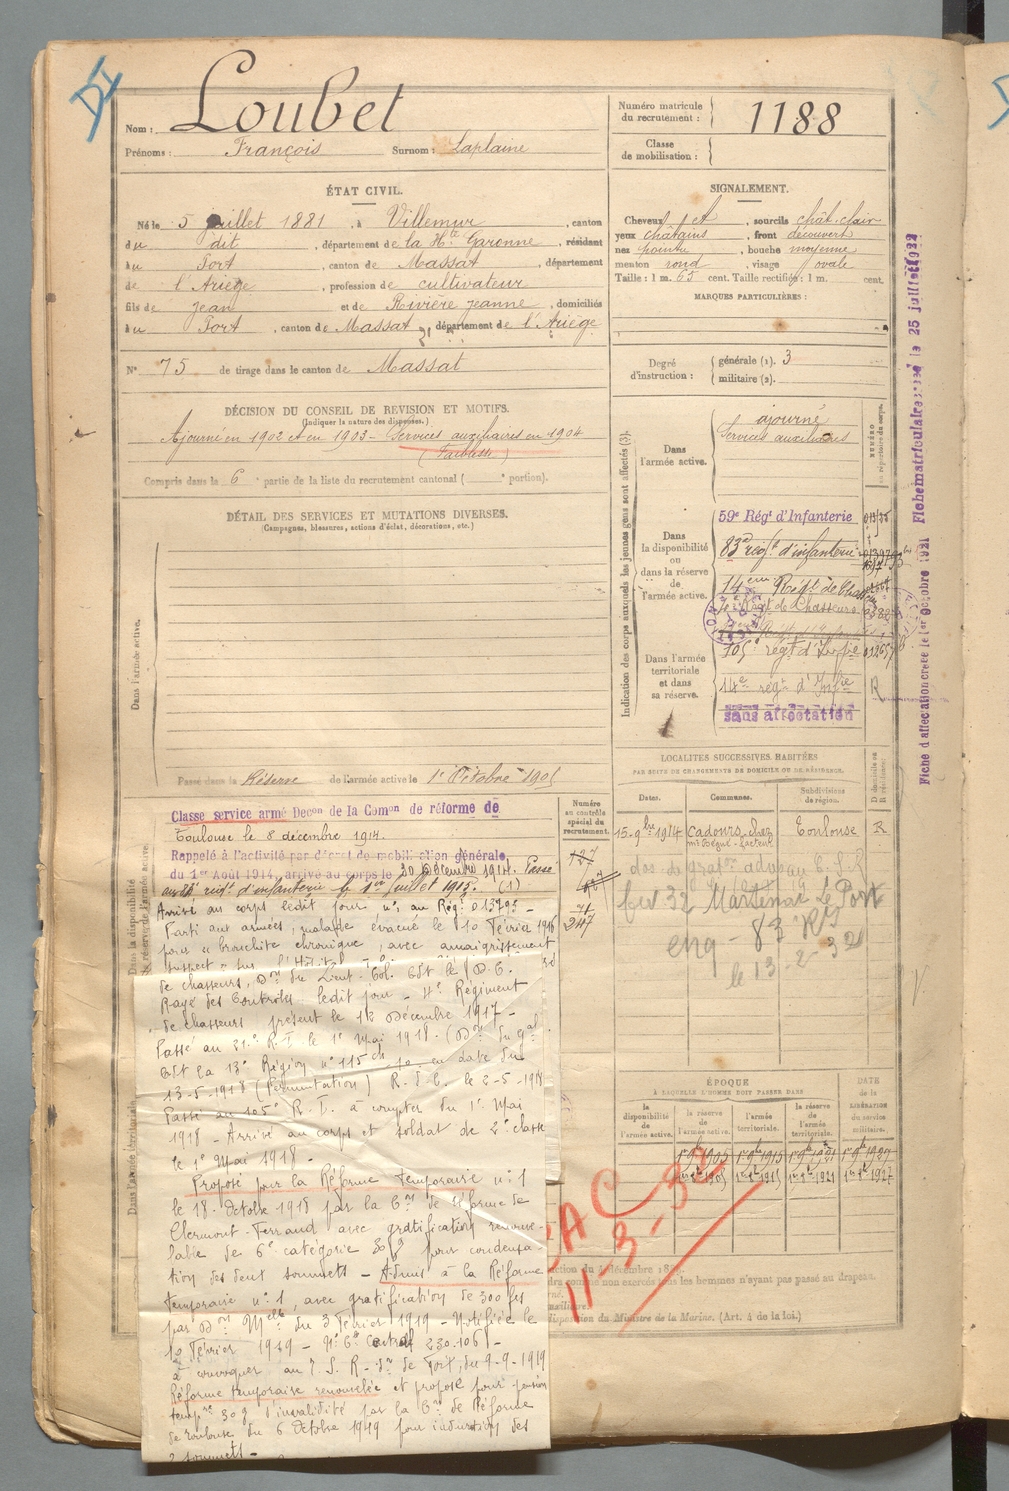 Nom : Loubet
Prénoms : François Surnom : Laplaine
Numéro matricule du recrutement : 1188
Classe de mobilisation :
ÉTAT CIVIL.
Né le 5 juillet 1881, à Villemur, canton
du dit, département de la Hte Garonne, résidant
au Port, canton de Massat, département
de l'Ariège, profession de cultivateur
fils de Jean et de Rivière Jeanne, domiciliés
au Port, canton de Massat, département de l'Ariège
N° 75 de tirage dans le canton de Massat
SIGNALEMENT.
Cheveux et, sourcils chât. clair
yeux châtains, front découvert
nez pointu, bouche moyenne
menton rond, visage ovale
Taille : 1 m. 65 cent. Taille rectifiée : 1 m. cent.
MARQUES PARTICULIÈRES :
Degré d'instruction : générale (1). 3
militaire (2).
DÉCISION DU CONSEIL DE REVISION ET MOTIFS.
(Indiquer la nature des dispenses.)
Ajourné en 1902 et en 1903 - Services auxiliaires en 1904
(Faiblesse)
Compris dans la 6e partie de la liste du recrutement cantonal ( portion).
DÉTAIL DES SERVICES ET MUTATIONS DIVERSES.
(Campagnes, blessures, actions d'éclat, décorations, etc.)
Dans l'armée active.
Passé dans la Réserve de l'armée active le 1er Octobre 1905
Indication des corps auxquels les jeunes gens sont affectés (3).
NUMÉRO au répertoire du corps.
Dans l'armée active.
ajourné
Services auxiliaires
Dans la disponibilité ou dans la réserve de l'armée active.
59e Régt d'Infanterie
83e régt d'infanterie
14em Régt de Chasseurs
Régt de Chasseurs
Dans l'armée territoriale et dans sa réserve.
105e régt d'Infie
14e régt d'Infie R
sans affectation
Fiche d'affectation créée le 1er Octobre 1921 Fiche matriculaire créée le 25 juillet 1922
LOCALITÉS SUCCESSIVES HABITÉES
PAR SUITE DE CHANGEMENTS DE DOMICILE OU DE RÉSIDENCE.
Dates. Communes. Subdivisions de région. D domicile ou R résidence.
15-9bre 1914 Cadours, chez Toulouse R
facteur
Martenac Le Port
83 Rts
le 13-2-32
Classe service armé Decon de la Comon de réforme de
Toulouse le 8 décembre 1914.
Rappelé à l'activité par décret de mobilisation générale
du 1er Août 1914, arrivé au corps le 20 Décembre 1914. Passé
au régt d'infanterie le 1er Juillet 1915. (1)
Numéro au contrôle spécial du recrutement.
247
Arrivé au corps ledit jour
Parti aux armées, malade évacué le 10 Février 1916
pour "bronchite chronique, avec amaigrissement
suspect" sur l'Hôpital
de chasseurs, Don du Lieut-Col. Cdt le D.C.
Rayé des Contrôles ledit jour - 4e Régiment
de chasseurs présent le 12 Décembre 1917 -
Passé au 21e R.I. le 1er Mai 1918. (Don du Gal
Cdt la 13e Région n° 115 en date du
13-5-1918 (Permutation) R.d.C. le 2-5-1918
Passé au 105e R.I. à compter du 1er Mai
1918 - Arrivé au corps et soldat de 2e classe
le 1er Mai 1918 -
Proposé pour la Réforme temporaire n° 1
le 18 Octobre 1918 par la Con de Réforme de
Clermont-Ferrand avec gratification renouve-
lable de 6e catégorie 30 % pour condensa-
tion des deux sommets - Admis à la Réforme
temporaire n° 1, avec gratification de 300 frs
par Don Melle du 3 Février 1919 - Notifiée le
10 Février 1919 -
Réforme temporaire renouvelée et proposé pour pension
tempre 30 % d'invalidité par la Con de Réforme
de Toulouse du 6 Octobre 1919 pour induration des
2 sommets -
ÉPOQUE
À LAQUELLE L'HOMME DOIT PASSER DANS
la disponibilité de l'armée active.
la réserve de l'armée active.
l'armée territoriale.
la réserve de l'armée territoriale.
DATE de la LIBÉRATION du service militaire.
11-3-32
hommes n'ayant pas passé au drapeau.
disposition du Ministre de la Marine. (Art. 4 de la loi.)